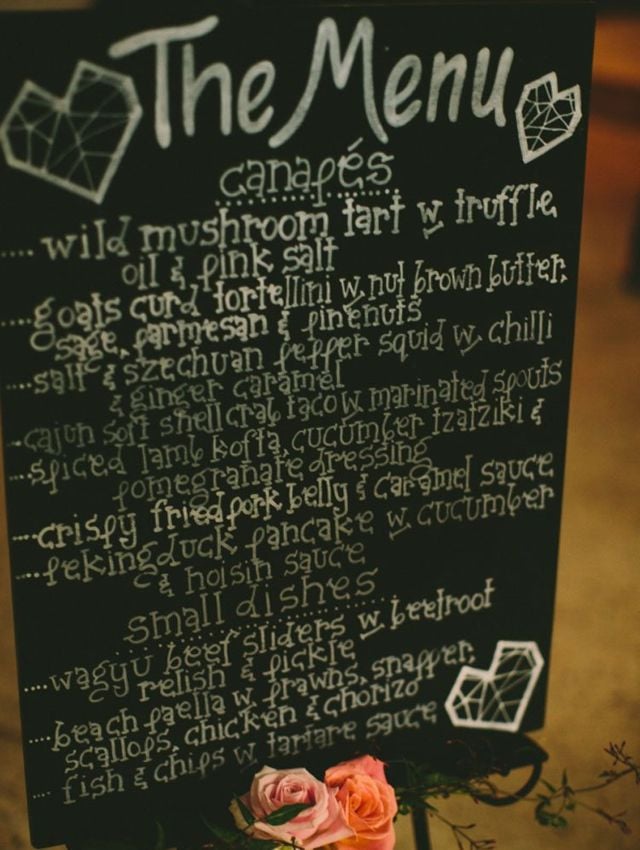 The Menu
canapés
....wild mushroom tart w. truffle
oil & pink salt
....goats curd tortellini w. nut brown butter,
sage, parmesan & pinenuts
....salt & szechuan pepper squid w. chilli
& ginger caramel
....cajun soft shell crab taco w. marinated spouts
....spiced lamb kofta, cucumber tzatziki &
pomegranate dressing
....crispy fried pork belly & caramel sauce
....peking duck pancake w. cucumber
& hoisin sauce
small dishes
....wagyu beef sliders w. beetroot
relish & pickle
....beach paella w. prawns, snapper,
scallops, chicken & chorizo
....fish & chips w tartare sauce